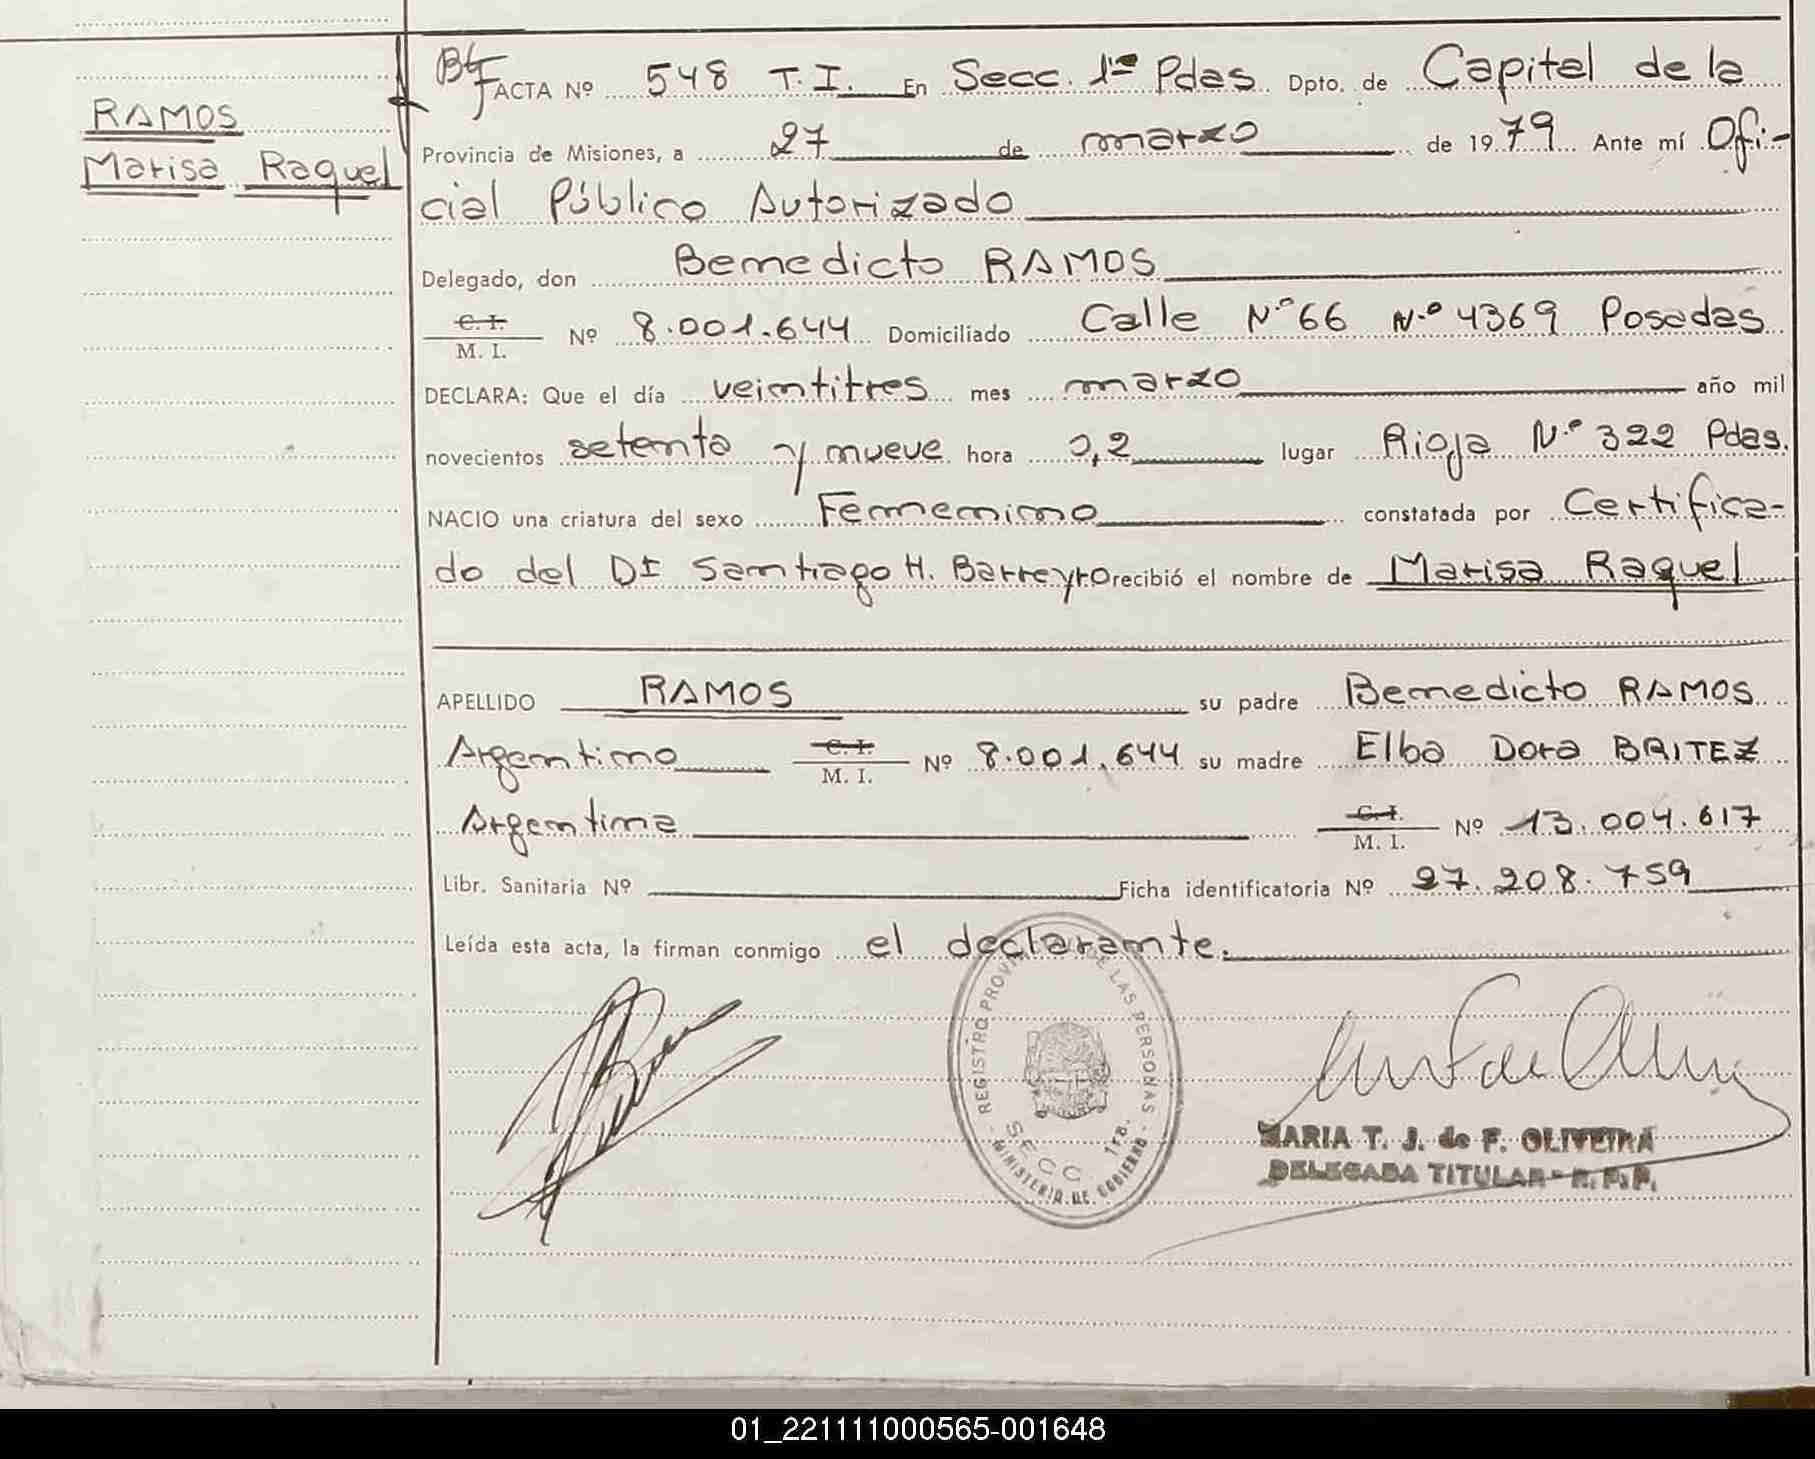 RAMOS
Marisa Raquel
ACTA Nº 548 T.I. En Secc. 1ª Pdas Dpto. de Capital de la
Provincia de Misiones, a 27 de marzo de 1979 Ante mí Ofi-
cial Público Autorizado
Delegado, don Benedicto RAMOS
C. I.
M. I. Nº 8.001.644 Domiciliado Calle Nº 66 Nº 4369 Posadas
DECLARA: Que el día veintitres mes marzo año mil
novecientos setenta y nueve hora 0,2 lugar Rioja Nº 322 Pdas.
NACIO una criatura del sexo Femenino constatada por Certifica-
do del Dr Santiago H. Barreyro recibió el nombre de Marisa Raquel
APELLIDO RAMOS su padre Benedicto RAMOS
Argentino C. I. M. I. Nº 8.001.644 su madre Elba Dora BRITEZ
Argentina C. I. M. I. Nº 13.004.617
Libr. Sanitaria Nº Ficha identificatoria Nº 27.208.759
Leída esta acta, la firman conmigo el declarante.
REGISTRO PROVI DE LAS PERSONAS
SECC 1ra.
MINISTERIO DE GOBIERNO
MARIA T. J. de F. OLIVEIRA
DELEGADA TITULAR - R. P. P.
01_221111000565-001648